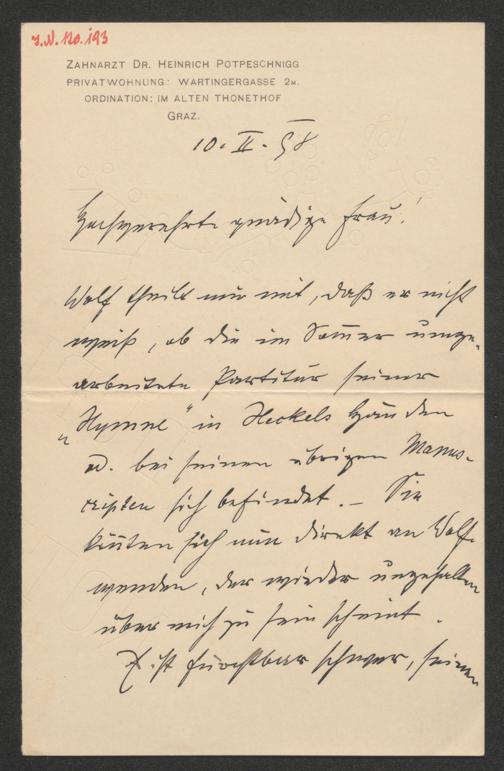 J.N. 120.193
ZAHNARZT DR. HEINRICH POTPESCHNIGG
PRIVATWOHNUNG: WARTINGERGASSE 2
ORDINATION: IM ALTEN THONETHOF
GRAZ.
10. II. 98
Hochverehrte gnädige Frau!
Wolf theilt mir mit, daß er nicht
weiß, ob die im Somer umge-
arbeitete Partitur seiner
„Hymne" in Heckels Händen
od. bei seinen übrigen Manus-
cripten sich befindet. – Sie
müßten sich nun direkt an Wolf
wenden, der wieder ungehalten
über mich zu sein scheint.
Es ist furchtbar schwer, seinen